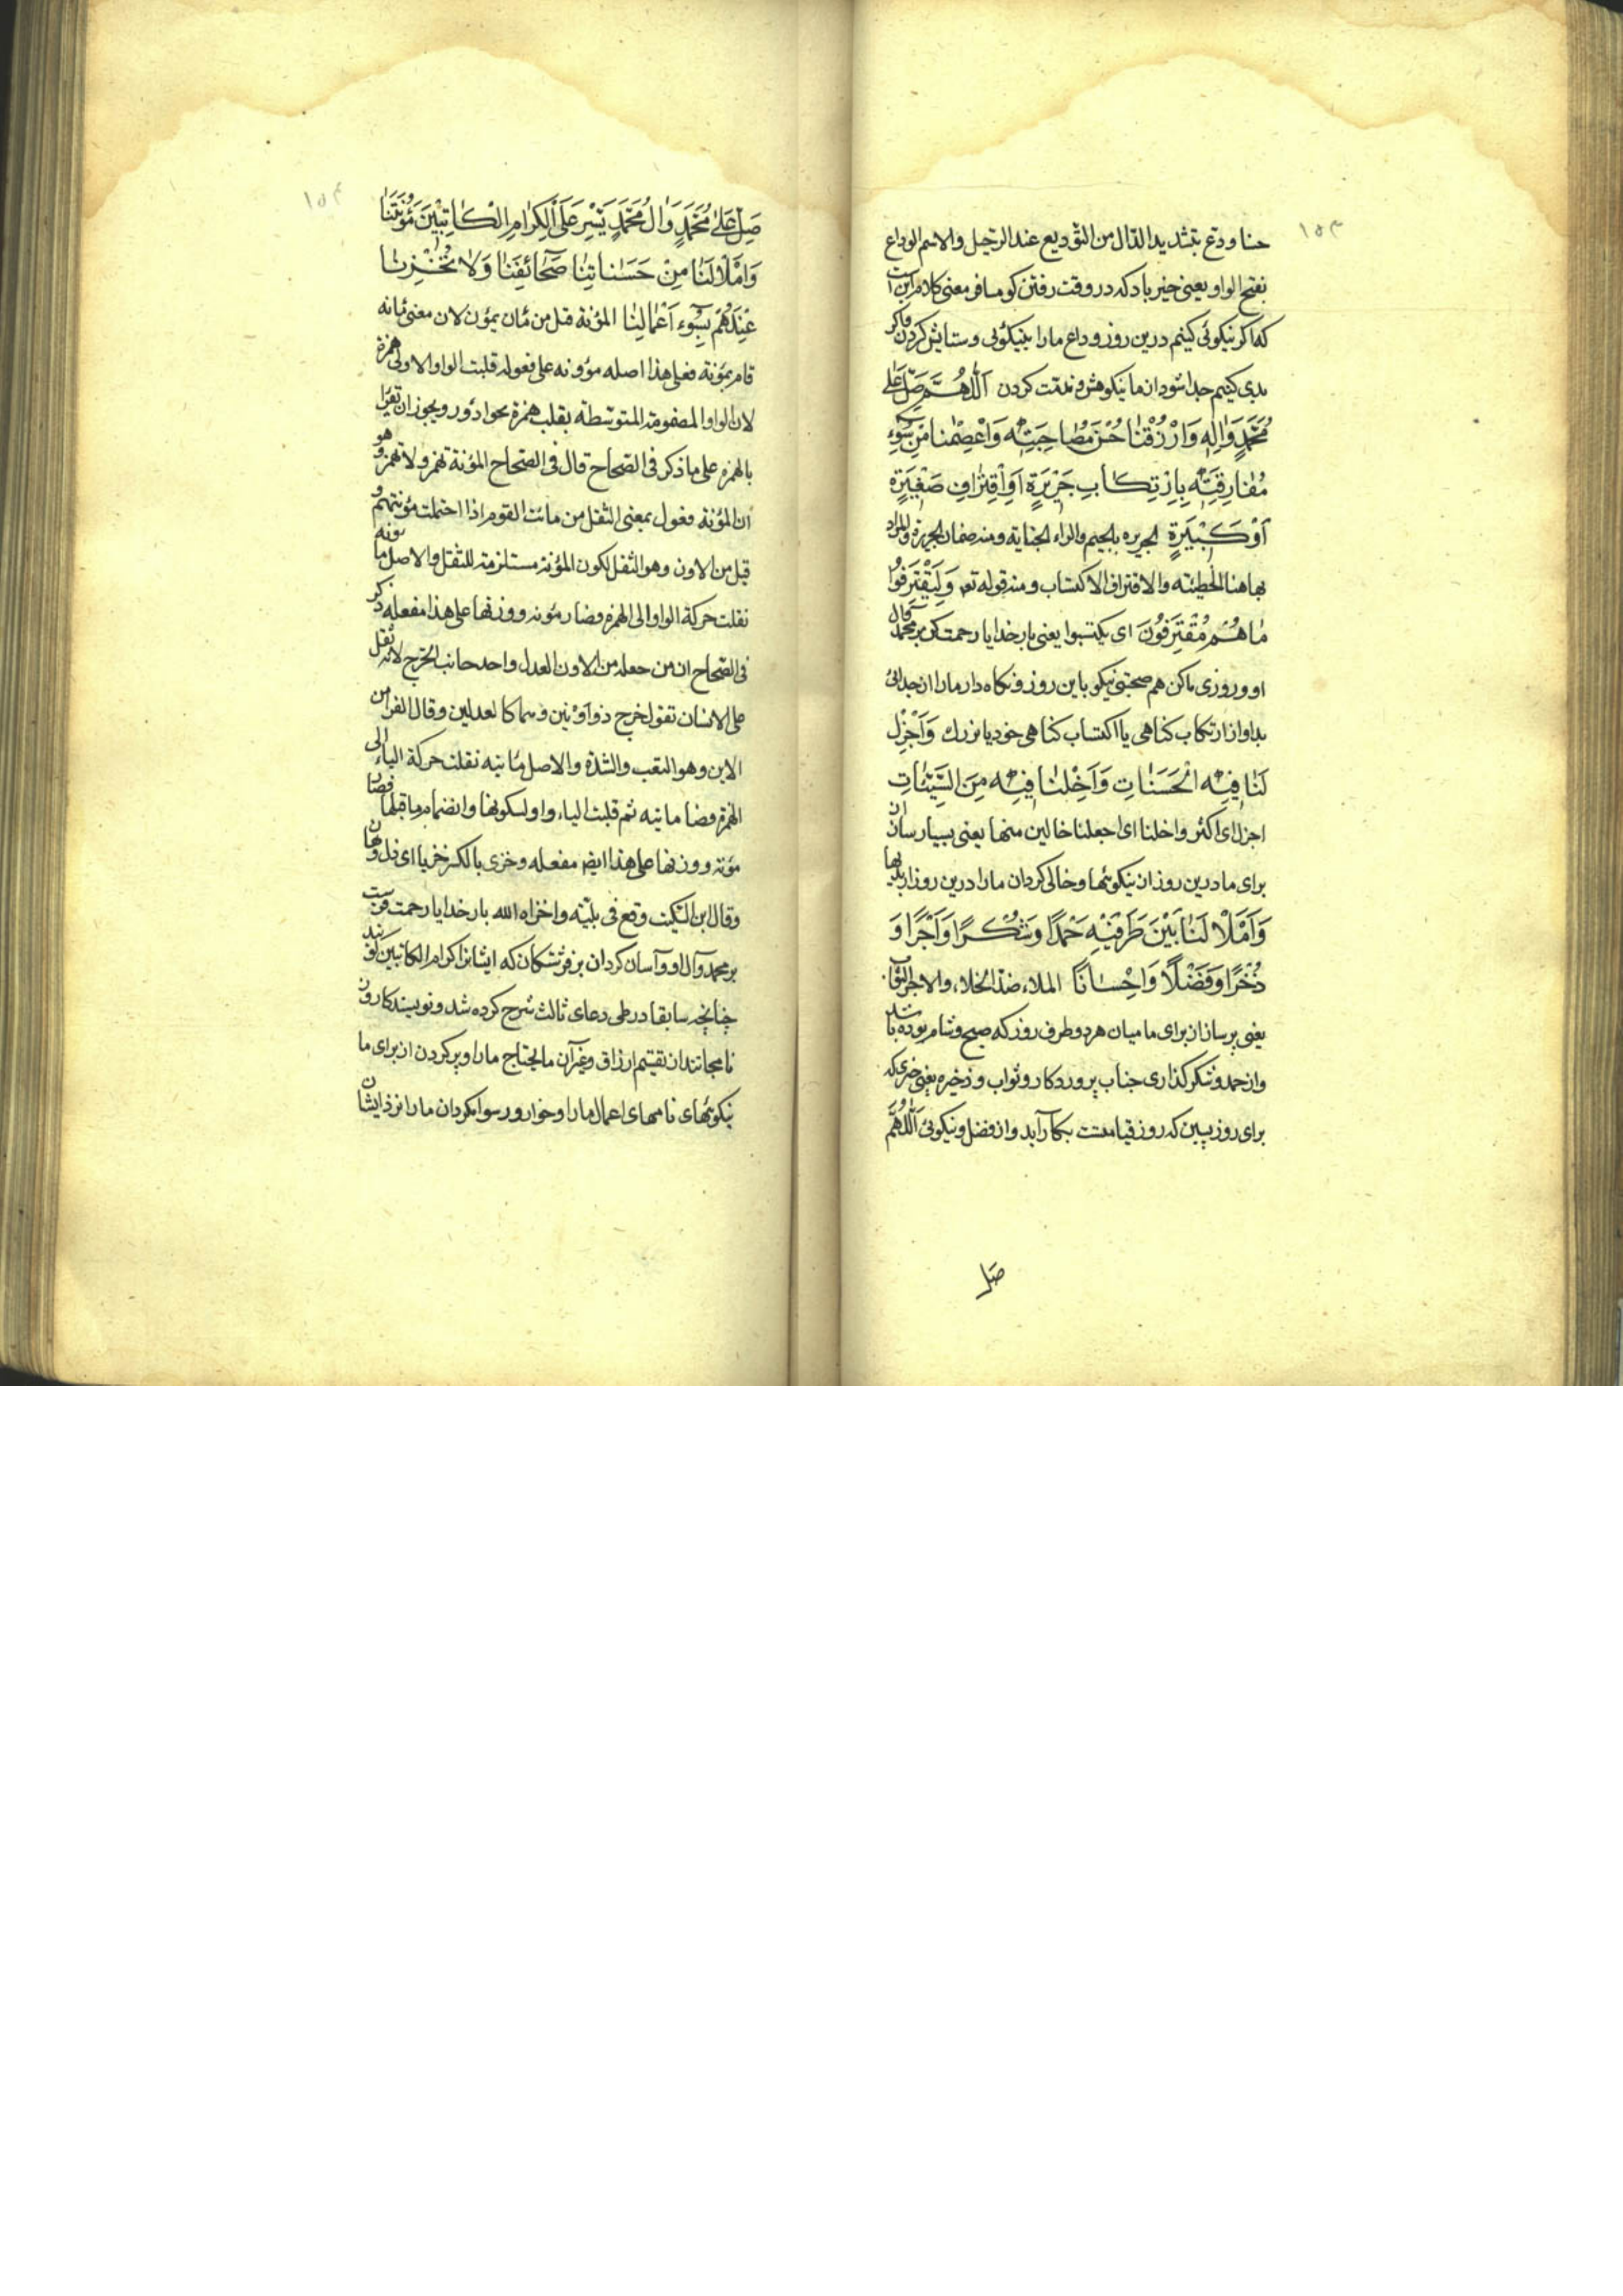 ۱۵۳
حنا ودع بتشدید الدال من التودیع عند الرحیل والاسم الوداع
بفتح الواو یعنی خیر باد که در وقت رفتن کو مسافر معنی کلام این است
که اکر نیکوئی کنیم درین روز وداع مارا بنیکوئی وستایش کردن واکر
بدی کنیم جدا شود از ما بنکوهش ومذمت کردن اَللّٰهُمَّ صَلِّ عَلٰی
مُحَمَّدٍ وَاٰلِهِ وَارْزُقْنٰا حُسْنَ مُصٰاحَبَتِهِ وَاعْصِمْنٰا مِنْ سُوءِ
مُفٰارَقَتِهِ بِارْتِكٰابِ جَرِیْرَةٍ اَوِ اقْتِرٰافِ صَغِیْرَةٍ
اَوْ كَبِیْرَةٍ الجریره بالجیم والراء الجنایة ومنه ضمان الجریرة والمراد
بها هنا الخطیئته والاقتراف الاکتساب ومنه قوله تع وَلِیَقْتَرِفُوا
مٰا هُمْ مُقْتَرِفُوْنَ ای یکتسبوا یعنی بار خدایا رحمت کن بر محمد وآل
او وروزی ما کن هم صحبتی نیکو باین روز ونکاه دار مارا از جدائی
بد او از ارتکاب کناهی یا اکتساب کناهی خورد یا بزرك وَاَجْزِلْ
لَنٰا فِیْهِ الْحَسَنٰاتِ وَاَخْلِنٰا فِیْهِ مِنَ السَّیِّئٰاتِ
اجزل ای اکثر واخلنا ای اجعلنا خالین منها یعنی بسیار سازان
برای ما درین روز ان نیکوئیها وخالی کردان مارا درین روز از بدیها
وَاَمْلَأْ لَنٰا بَیْنَ طَرَفَیْهِ حَمْدًا وَشُكْرًا وَاَجْرًا وَ
ذُخْرًا وَفَضْلًا وَاِحْسٰانًا الملاء ضد الخلاء والاجر الثواب
یعنی پر سازان برای ما میان هر دو طرف روز که صبح وشام بوده باشد
واز حمد وشکر کذاری جناب پروردکار وثواب وذخیره یعنی خیری که
برای روز پسین که روز قیامتست بکار آید واز فضل ونیکوئی اَللّٰهُمَّ
صل
۱۵۴
صَلِّ عَلٰی مُحَمَّدٍ وَاٰلِ مُحَمَّدٍ یَسِّرْ عَلَی الْكِرٰامِ الْكٰاتِبِیْنَ مَؤُنَتَنٰا
وَامْلَأْ لَنٰا مِنْ حَسَنٰاتِنٰا صَحٰائِفَنٰا وَلٰا تُخْزِنٰا
عِنْدَهُمْ بِسُوءِ اَعْمٰالِنٰا المؤنة قیل من مان یمؤن لان معنی مانه
قام بمؤنة فعلی هذا اصله مؤونه علی فعوله قلبت الواو الاولی همزة
لان الواو المضمومة المتوسطة یقلب همزة نحو ادؤر ویجوز ان تقرأ
بالهمزه علی ما ذکر فی الصحاح قال فی الصحاح المؤنة تهمز ولا تهمز وهو
ان المؤنة فعول بمعنی الثقل من مانت القوم اذا احتملت مؤنتهم و
قیل من الاون وهو الثقل لکون المؤنة مستلزمة للثقل والاصل ماونه
نقلت حرکة الواو الی الهمزه فصار مؤنه ووزنها علی هذا مفعله ذکر
فی الصحاح ان من جعله من الاون العدل واحد جانب الخرج لانه ثقل
علی الانسان تقول خرج ذو اونین وهما کالعدلین وقال الفراء من
الاین وهو التعب والشدة والاصل ماینه نقلت حرکة الیاء الی
الهمزة فصار ماینه ثم قلبت الیاء واو لسکونها وانضمام ما قبلها فصار
مؤنه ووزنها علی هذا ایض مفعله وخزی بالکسر خزیا ای ذل وهان
وقال ابن السکیت وقع فی بلیّته واخزاه الله بار خدایا رحمت فرست
بر محمد وآل او وآسان کردان بر فرشتکان که ایشانرا کرام الکاتبین کویند
چنانچه سابقا در طی دعای ثالث شرح کرده شد ونویسند کارون
ما محتاج مارا وپر کردن از برای ما
نیکوئیهای نامهای اعمال مارا وخوار ورسوا مکردان مارا نزد ایشان